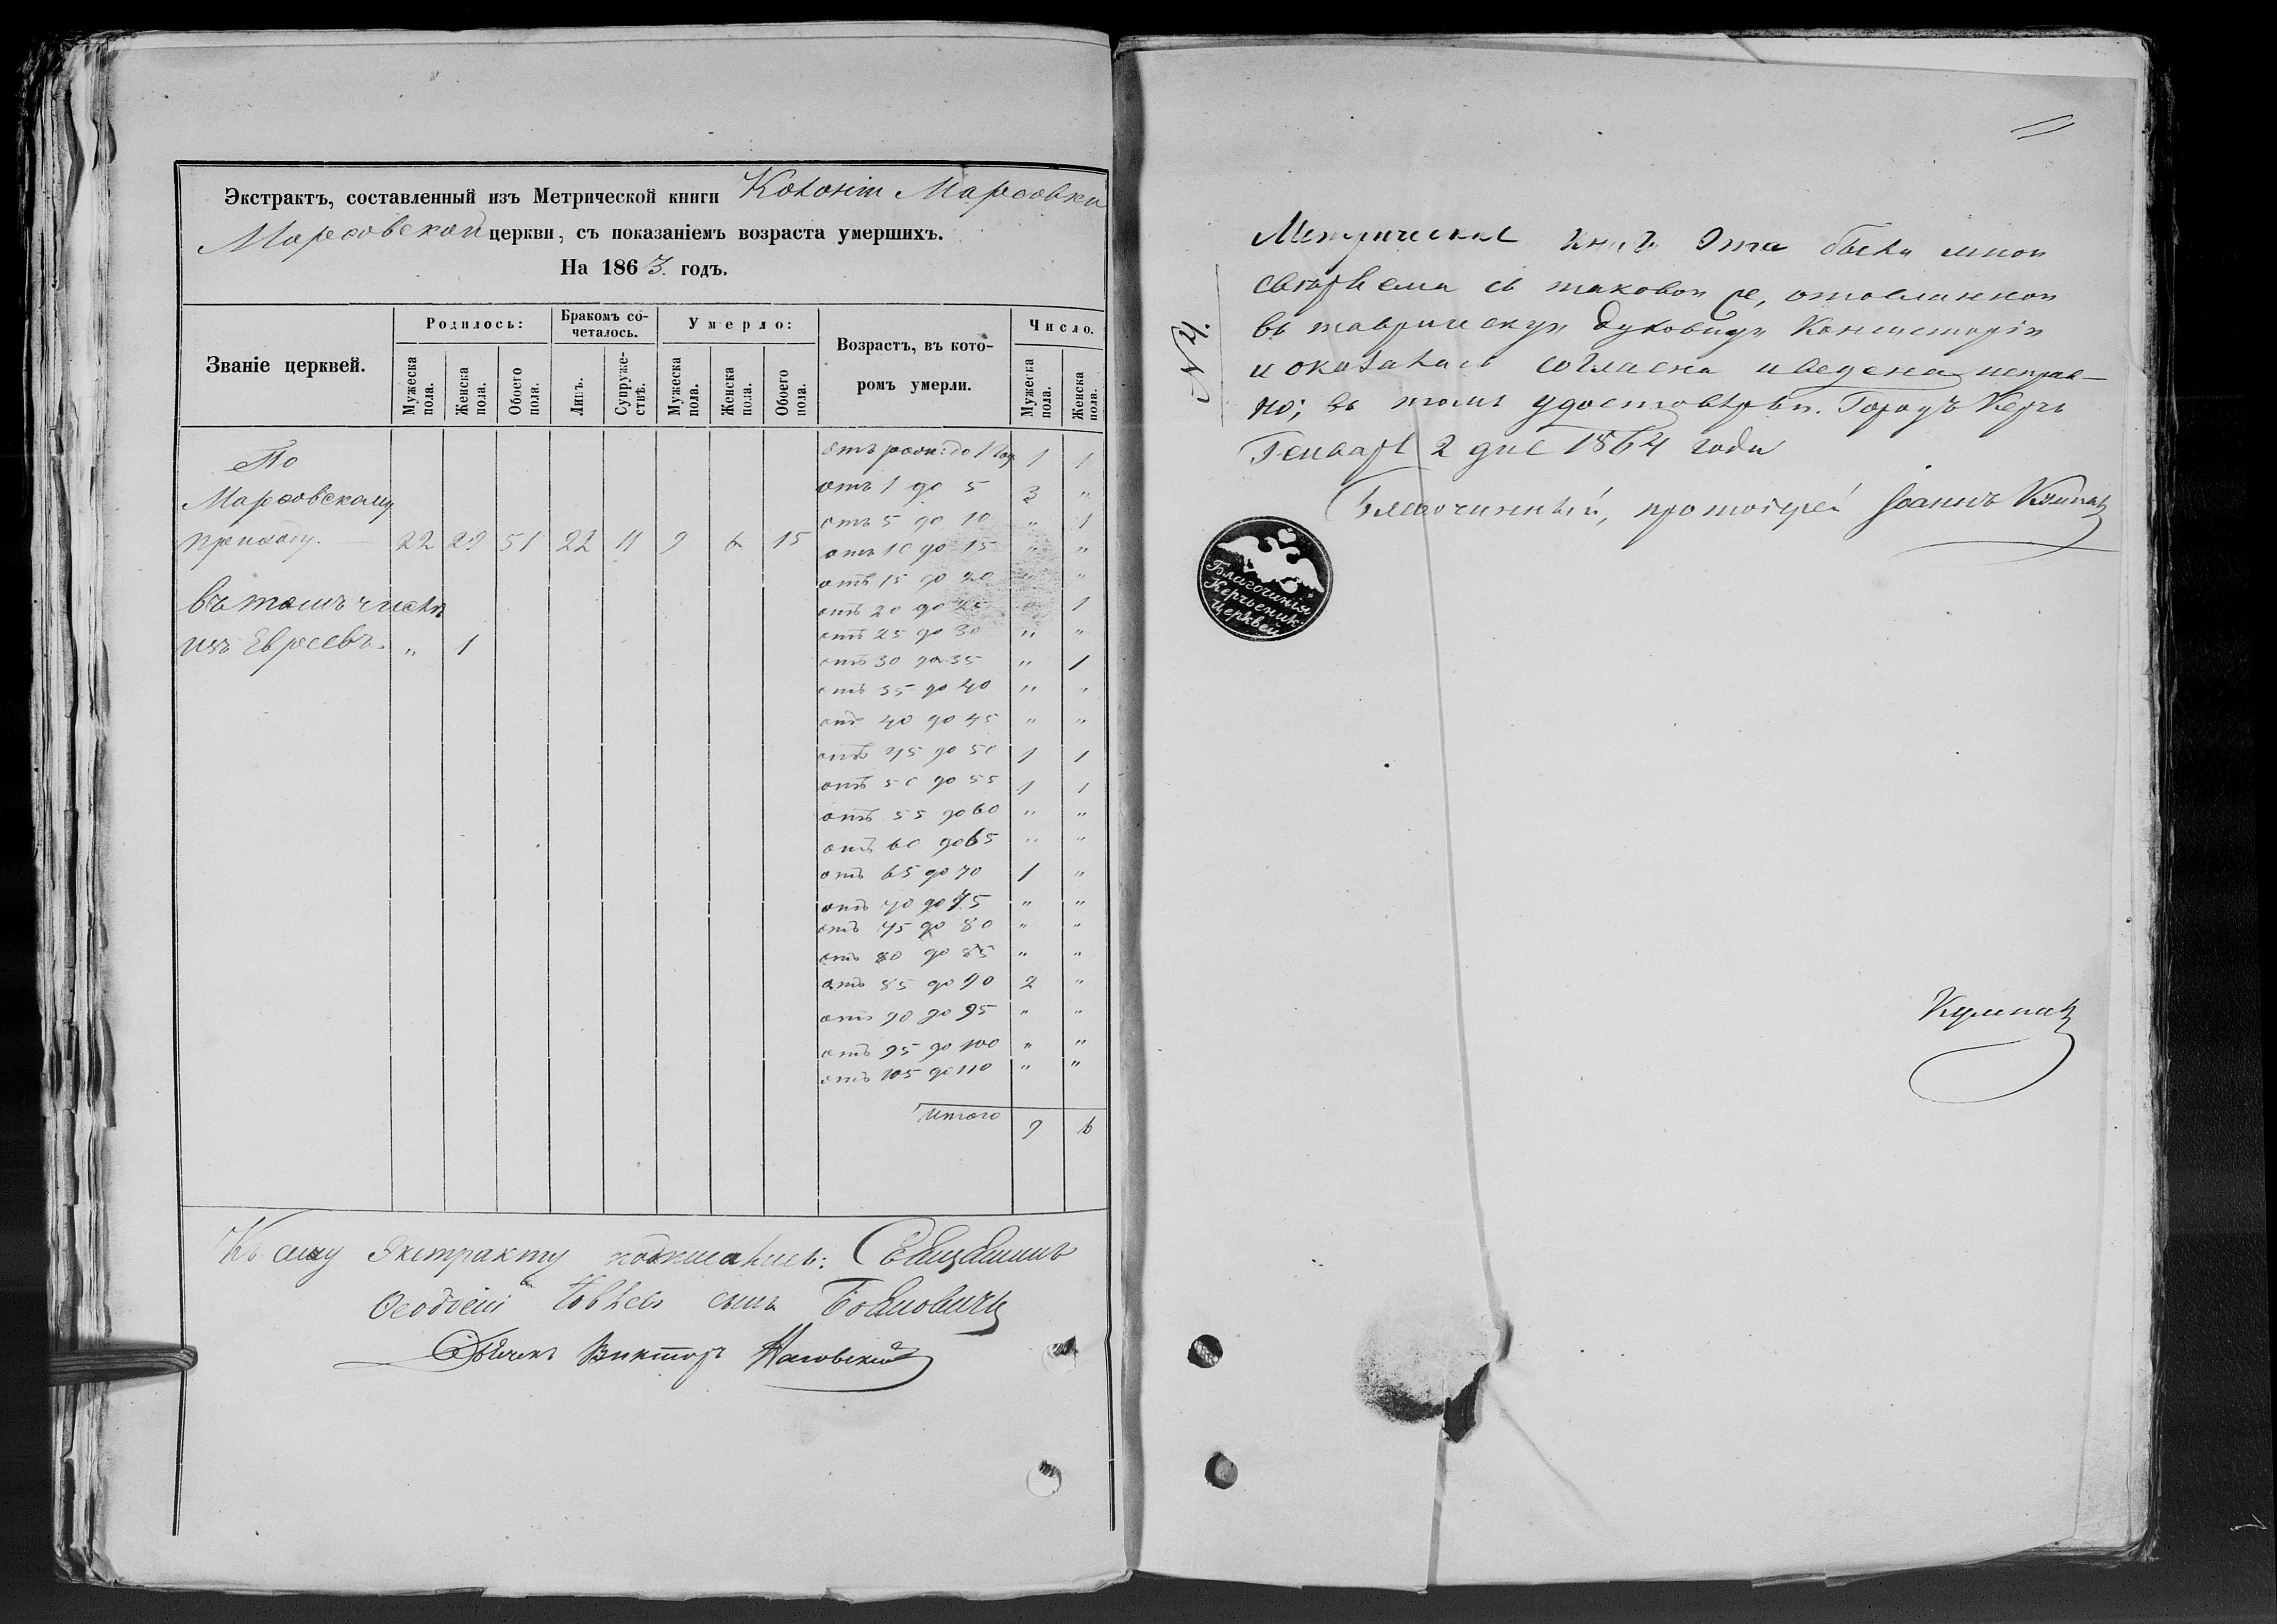 Экстрактъ, составленный изъ Метрической книги Колоніи Марсовки
Марсовской церкви, съ показаніемъ возраста умершихъ.
На 1863. годъ.
Званіе церквей.
Родилось:
Бракомъ сочеталось.
Умерло:
Возрастъ, въ которомъ умерли.
Число.
Мужеска пола. Женска пола. Обоего пола. Лицъ. Супружествъ. Мужеска пола. Женска пола. Обоего пола. Мужеска пола. Женска пола.
По
Марсовскому
приходу. 22 29 51 22 11 9 6 15
въ томъ числѣ
изъ Евреевъ. „ 1
отъ рожд: до 1 год 1 1
отъ 1 до 5 3 „
отъ 5 до 10 „ 1
отъ 10 до 15 „ „
отъ 15 до 20 „ „
отъ 20 до 25 „ 1
отъ 25 до 30 „ „
отъ 30 до 35 „ 1
отъ 35 до 40 „ „
отъ 40 до 45 „ „
отъ 45 до 50 1 1
отъ 50 до 55 1 1
отъ 55 до 60 „ „
отъ 60 до 65 „ „
отъ 65 до 70 1 „
отъ 70 до 75 „ „
отъ 75 до 80 „ „
отъ 80 до 85 „ „
отъ 85 до 90 2 „
отъ 90 до 95 „ „
отъ 95 до 100 „ „
отъ 105 до 110 „ „
Итого 9 6
Къ сему Экстракту подписались: Священникъ
Ѳеодосій сынъ
Дьячекъ Викторъ
11
N 4.
Метрическая книга эта была мною
свѣряема съ таковою же, отосланною
въ таврическую духовную Консисторію
и оказалась согласна и ведена исправ-
но; въ томъ удостовѣряю. Городъ Керчь
Генваря 2 дня 1864 года
Благочинный, протоіерей Іоаннъ
Благочинія
Керченик:
Церквей